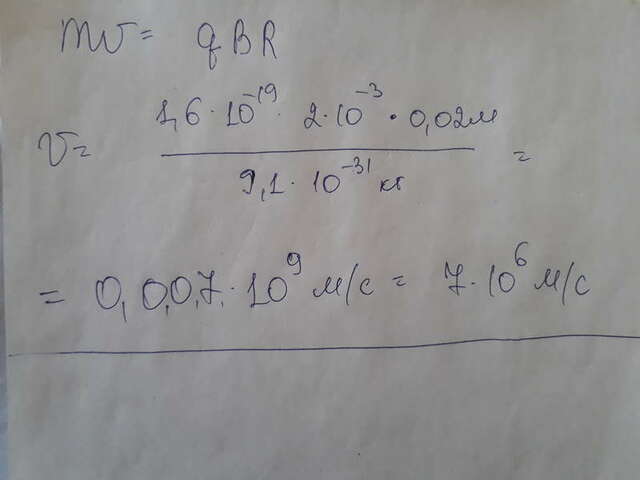 mv = qBR
v = 1,6 · 10^-19 · 2 · 10^-3 · 0,02 м / 9,1 · 10^-31 кг =
= 0,007 · 10^9 м/с = 7 · 10^6 м/с